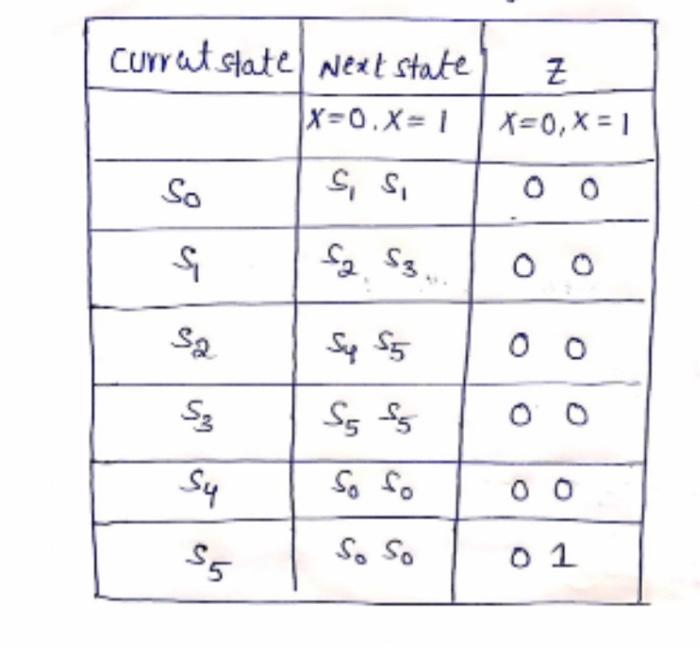 Curratstate Next state Z
X=0, X=1 X=0, X=1
S0 S1 S1 0 0
S1 S2 S3 0 0
S2 S4 S5 0 0
S3 S5 S5 0 0
S4 S0 S0 0 0
S5 S0 S0 0 1